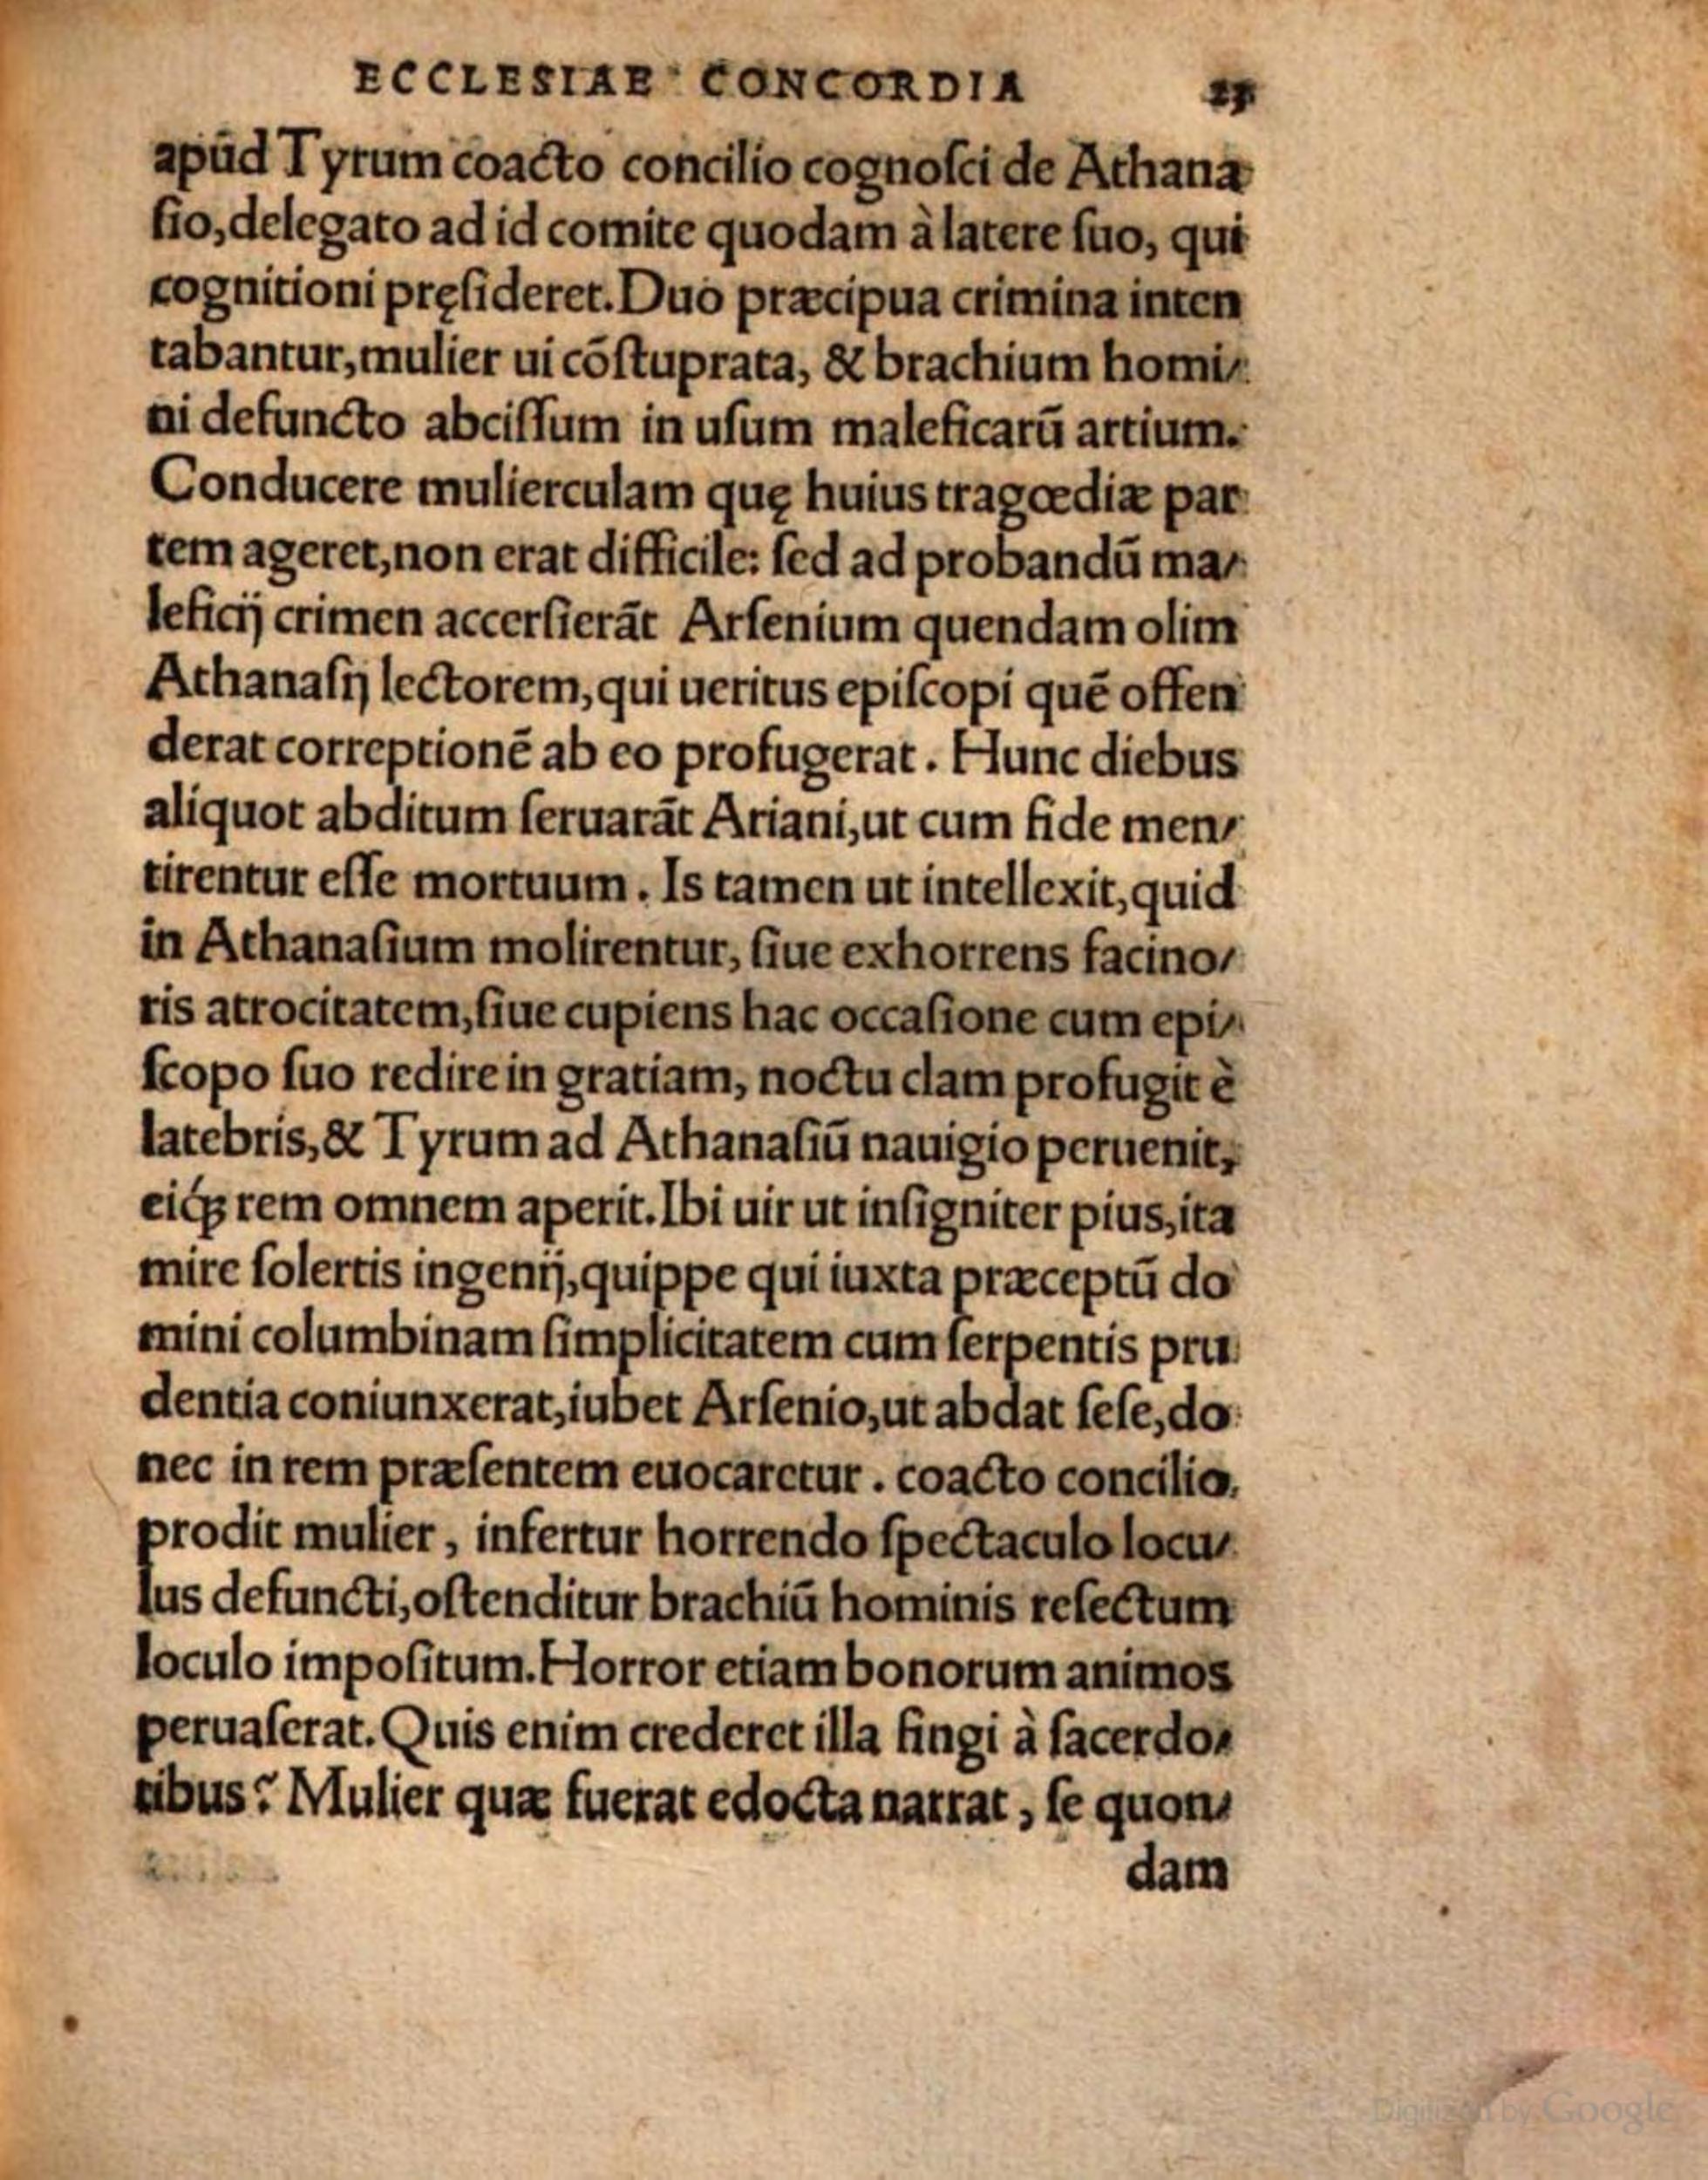 ECCLESIAE CONCORDIA
apud Tyrum coacto concilio cognoſci de Athana
ſio,delegato ad id comite quodam à latere ſuo, qui
cognitioni pręſideret.Duo præcipua crimina inten
tabantur,mulier ui cōſtuprata, & brachium homi⸗
ni defuncto abciſſum in uſum maleficarū artium.
Conducere mulierculam quę huius tragœdiæ par
tem ageret,non erat difficile: ſed ad probandū ma⸗
leficij crimen accerſierāt Arſenium quendam olim
Athanaſij lectorem,qui ueritus epiſcopi quē offen
derat correptionē ab eo profugerat . Hunc diebus
aliquot abditum ſeruarāt Ariani,ut cum fide men⸗
tirentur eſſe mortuum . Is tamen ut intellexit,quid
in Athanaſium molirentur, ſiue exhorrens facino⸗
ris atrocitatem,ſiue cupiens hac occaſione cum epi⸗
ſcopo ſuo redire in gratiam, noctu clam profugit è
latebris,& Tyrum ad Athanaſiū nauigio peruenit,
eiq́ꝫ rem omnem aperit.Ibi uir ut inſigniter pius,ita
mire ſolertis ingenij,quippe qui iuxta præceptū do
mini columbinam ſimplicitatem cum ſerpentis pru
dentia coniunxerat,iubet Arſenio,ut abdat ſeſe,do
nec in rem præſentem euocaretur . coacto concilio
prodit mulier , infertur horrendo ſpectaculo locu⸗
lus defuncti,oſtenditur brachiū hominis reſectum
loculo impoſitum.Horror etiam bonorum animos
peruaſerat.Quis enim crederet illa fingi à ſacerdo⸗
tibus? Mulier quæ fuerat edocta narrat , ſe quon⸗
dam
Digitized by Google